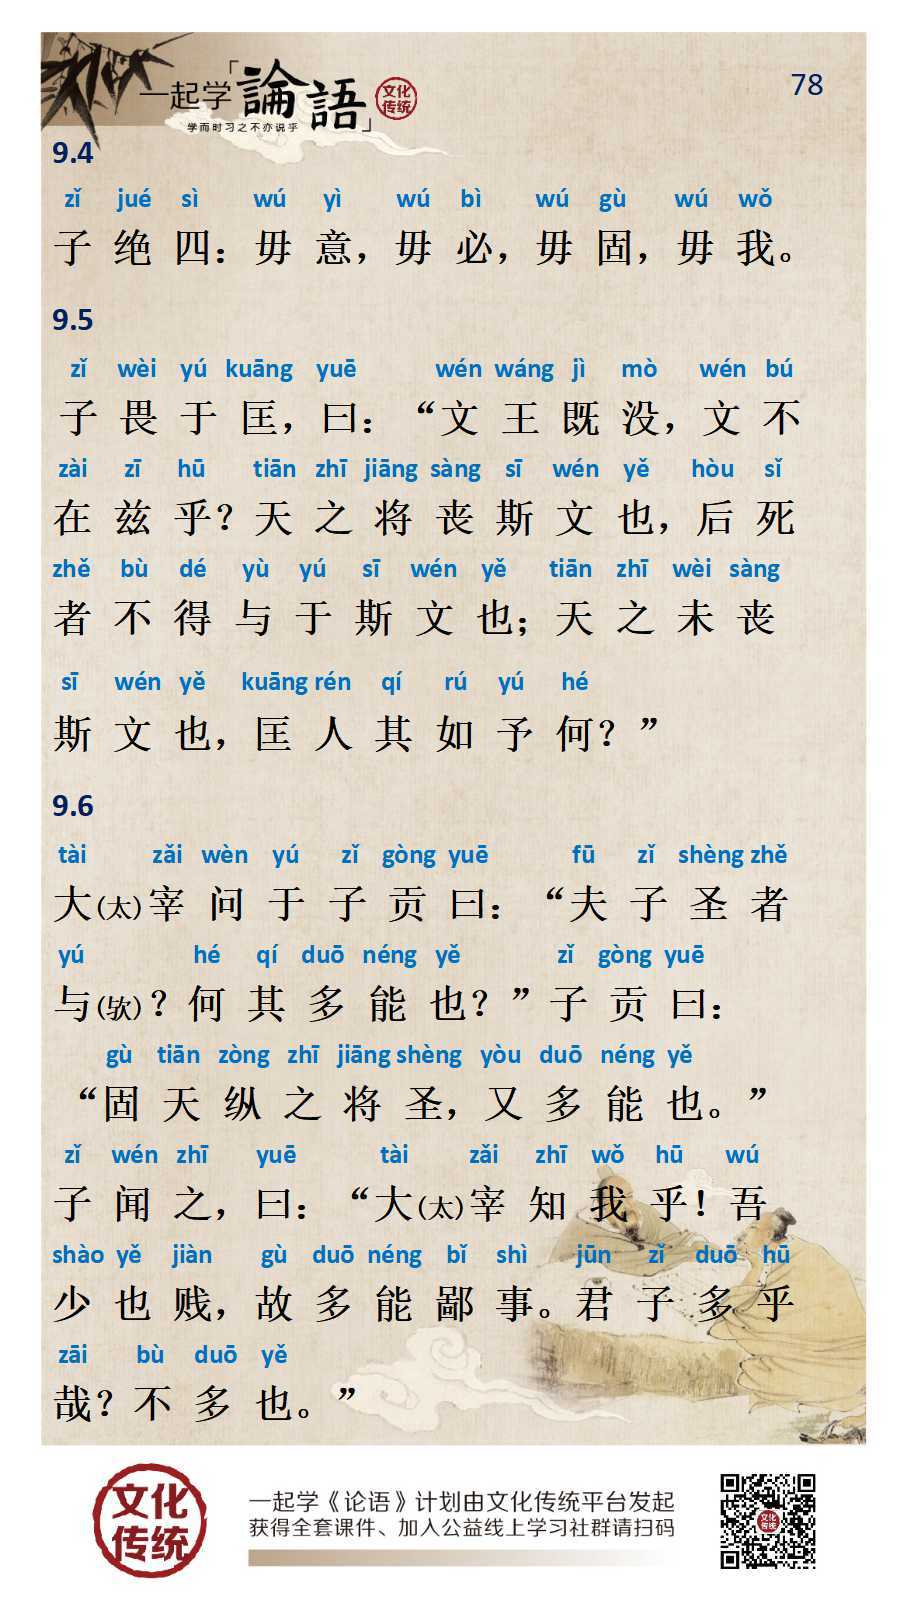 一起学「論語」 文化传统
学而时习之不亦说乎
78
9.4
zǐ jué sì wú yì wú bì wú gù wú wǒ
子绝四：毋意，毋必，毋固，毋我。
9.5
zǐ wèi yú kuāng yuē wén wáng jì mò wén bú
子畏于匡，曰：“文王既没，文不
zài zī hū tiān zhī jiāng sàng sī wén yě hòu sǐ
在兹乎？天之将丧斯文也，后死
zhě bù dé yù yú sī wén yě tiān zhī wèi sàng
者不得与于斯文也；天之未丧
sī wén yě kuāng rén qí rú yú hé
斯文也，匡人其如予何？”
9.6
tài zǎi wèn yú zǐ gòng yuē fū zǐ shèng zhě
大(太)宰问于子贡曰：“夫子圣者
yú hé qí duō néng yě zǐ gòng yuē
与(欤)？何其多能也？”子贡曰：
gù tiān zòng zhī jiāng shèng yòu duō néng yě
“固天纵之将圣，又多能也。”
zǐ wén zhī yuē tài zǎi zhī wǒ hū wú
子闻之，曰：“大(太)宰知我乎！吾
shào yě jiàn gù duō néng bǐ shì jūn zǐ duō hū
少也贱，故多能鄙事。君子多乎
zāi bù duō yě
哉？不多也。”
文化传统
一起学《论语》计划由文化传统平台发起
获得全套课件、加入公益线上学习社群请扫码
文化传统